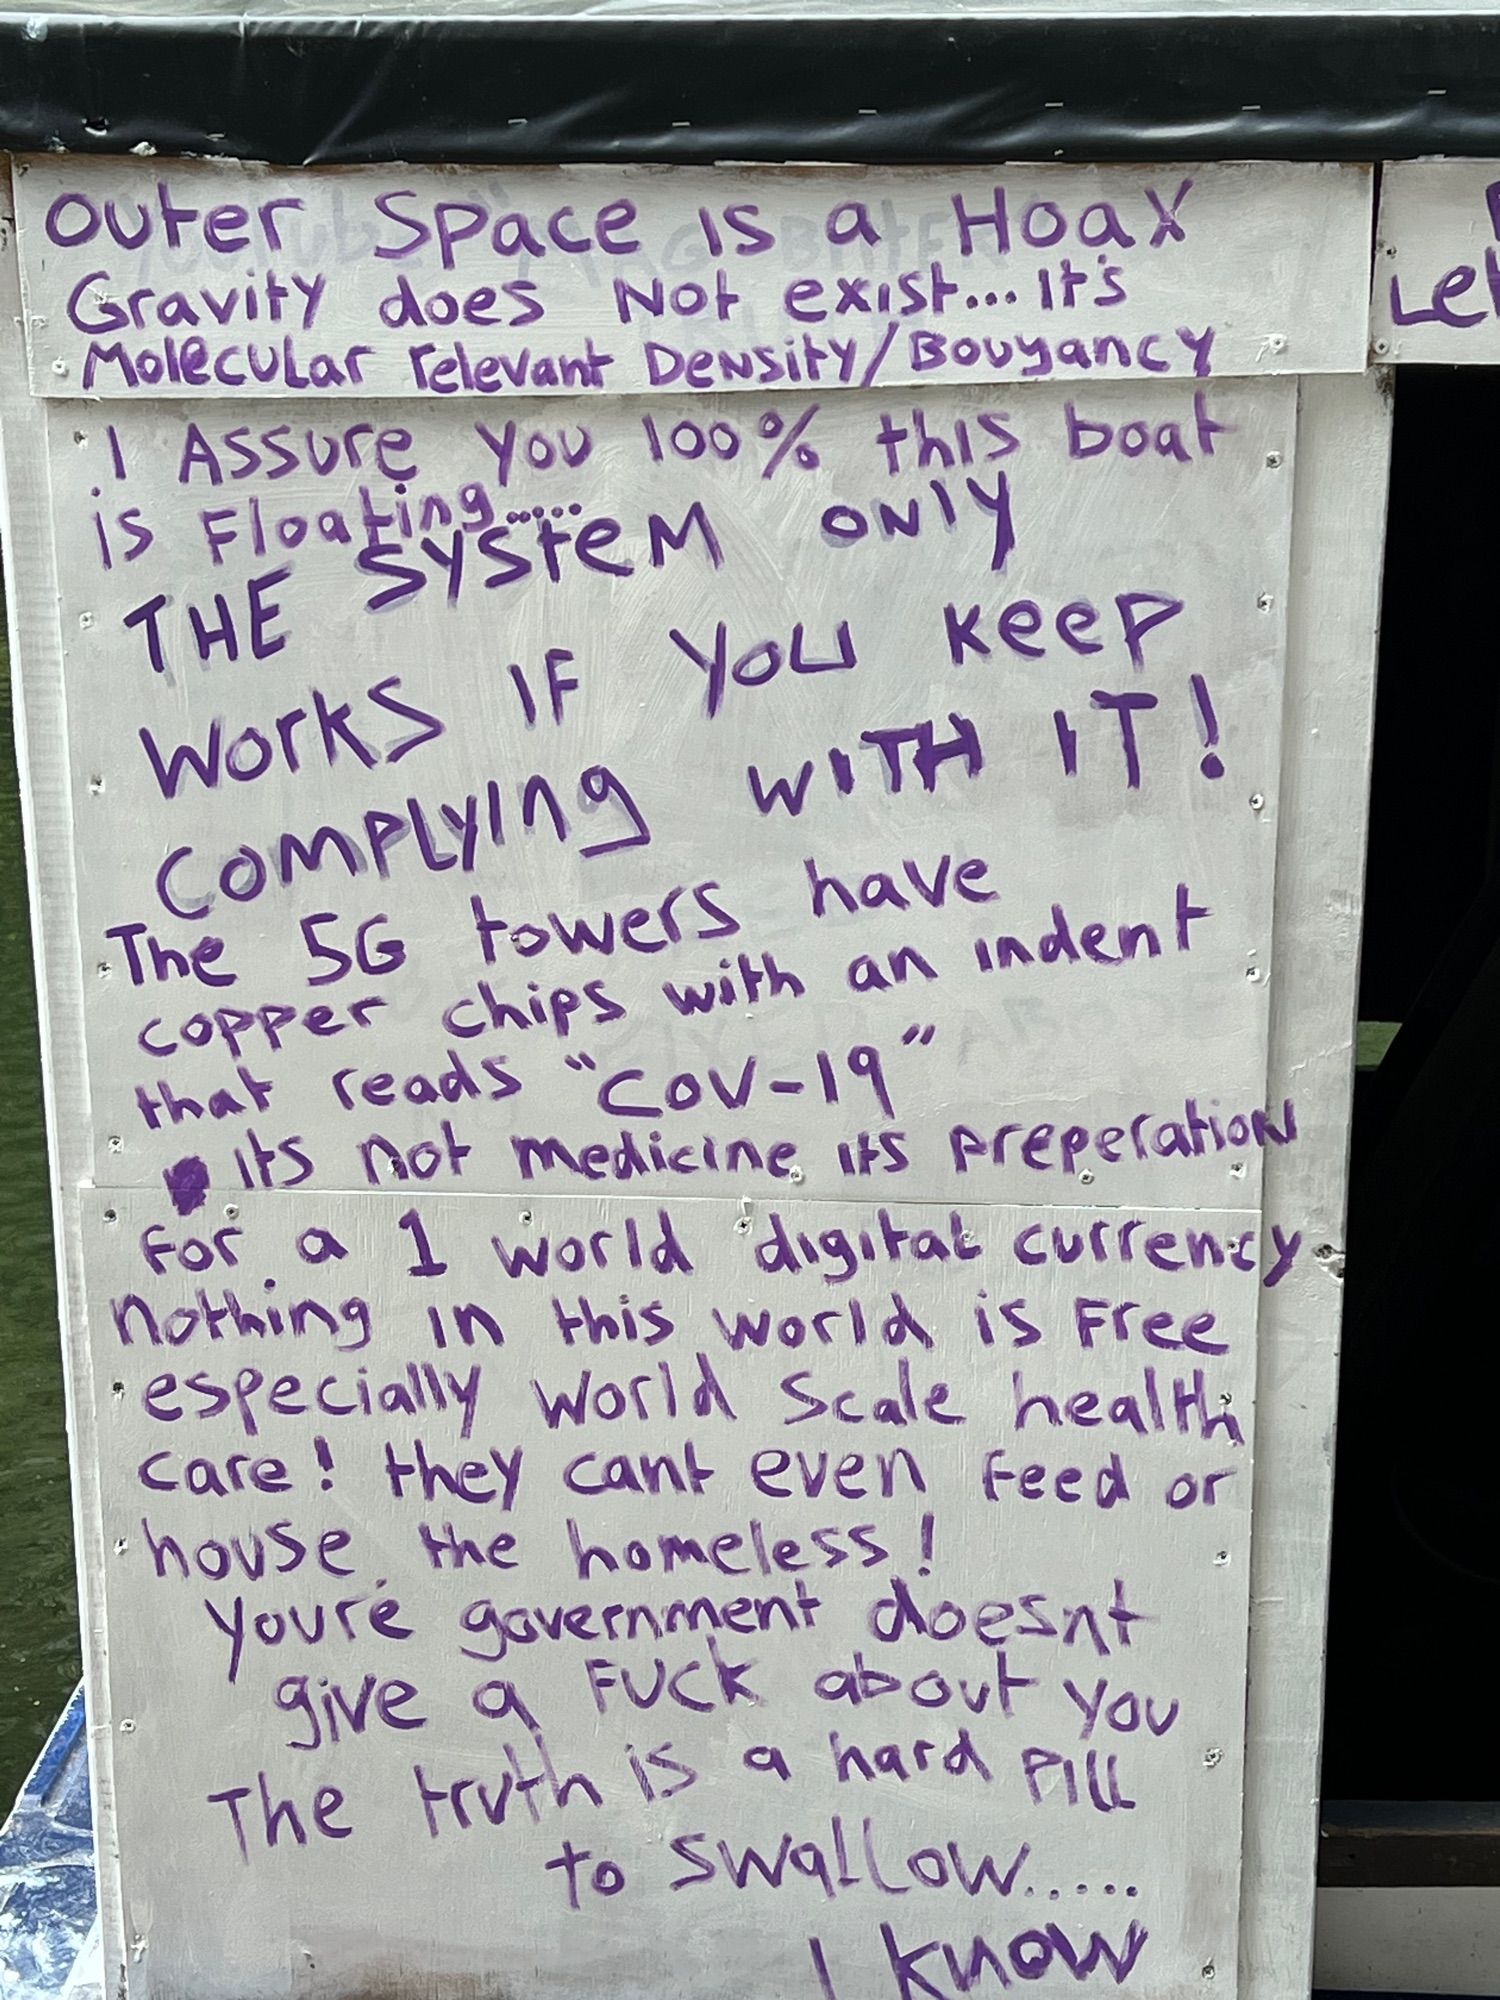 Outer Space is a Hoax
Gravity does Not exist... It's
Molecular relevant Density/Bouyancy
I Assure you 100% this boat
is Floating.....
THE SYSTEM ONLY
WORKS IF YOU KEEP
COMPLYING WITH IT!
The 5G towers have
copper chips with an indent
that reads "COV-19"
its not medicine its preperation
for a 1 world digital currency
nothing in this world is Free
especially world scale health
care! they cant even feed or
house the homeless!
youre government doesnt
give a FUCK about you
The truth is a hard pill
to swallow.....
I know